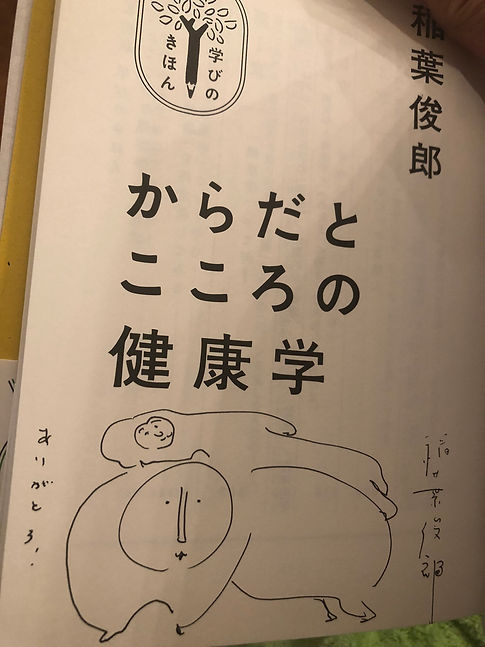 稲葉俊郎
学びの
きほん
からだと
こころの
健康学
ありがとう!
稲葉俊郎